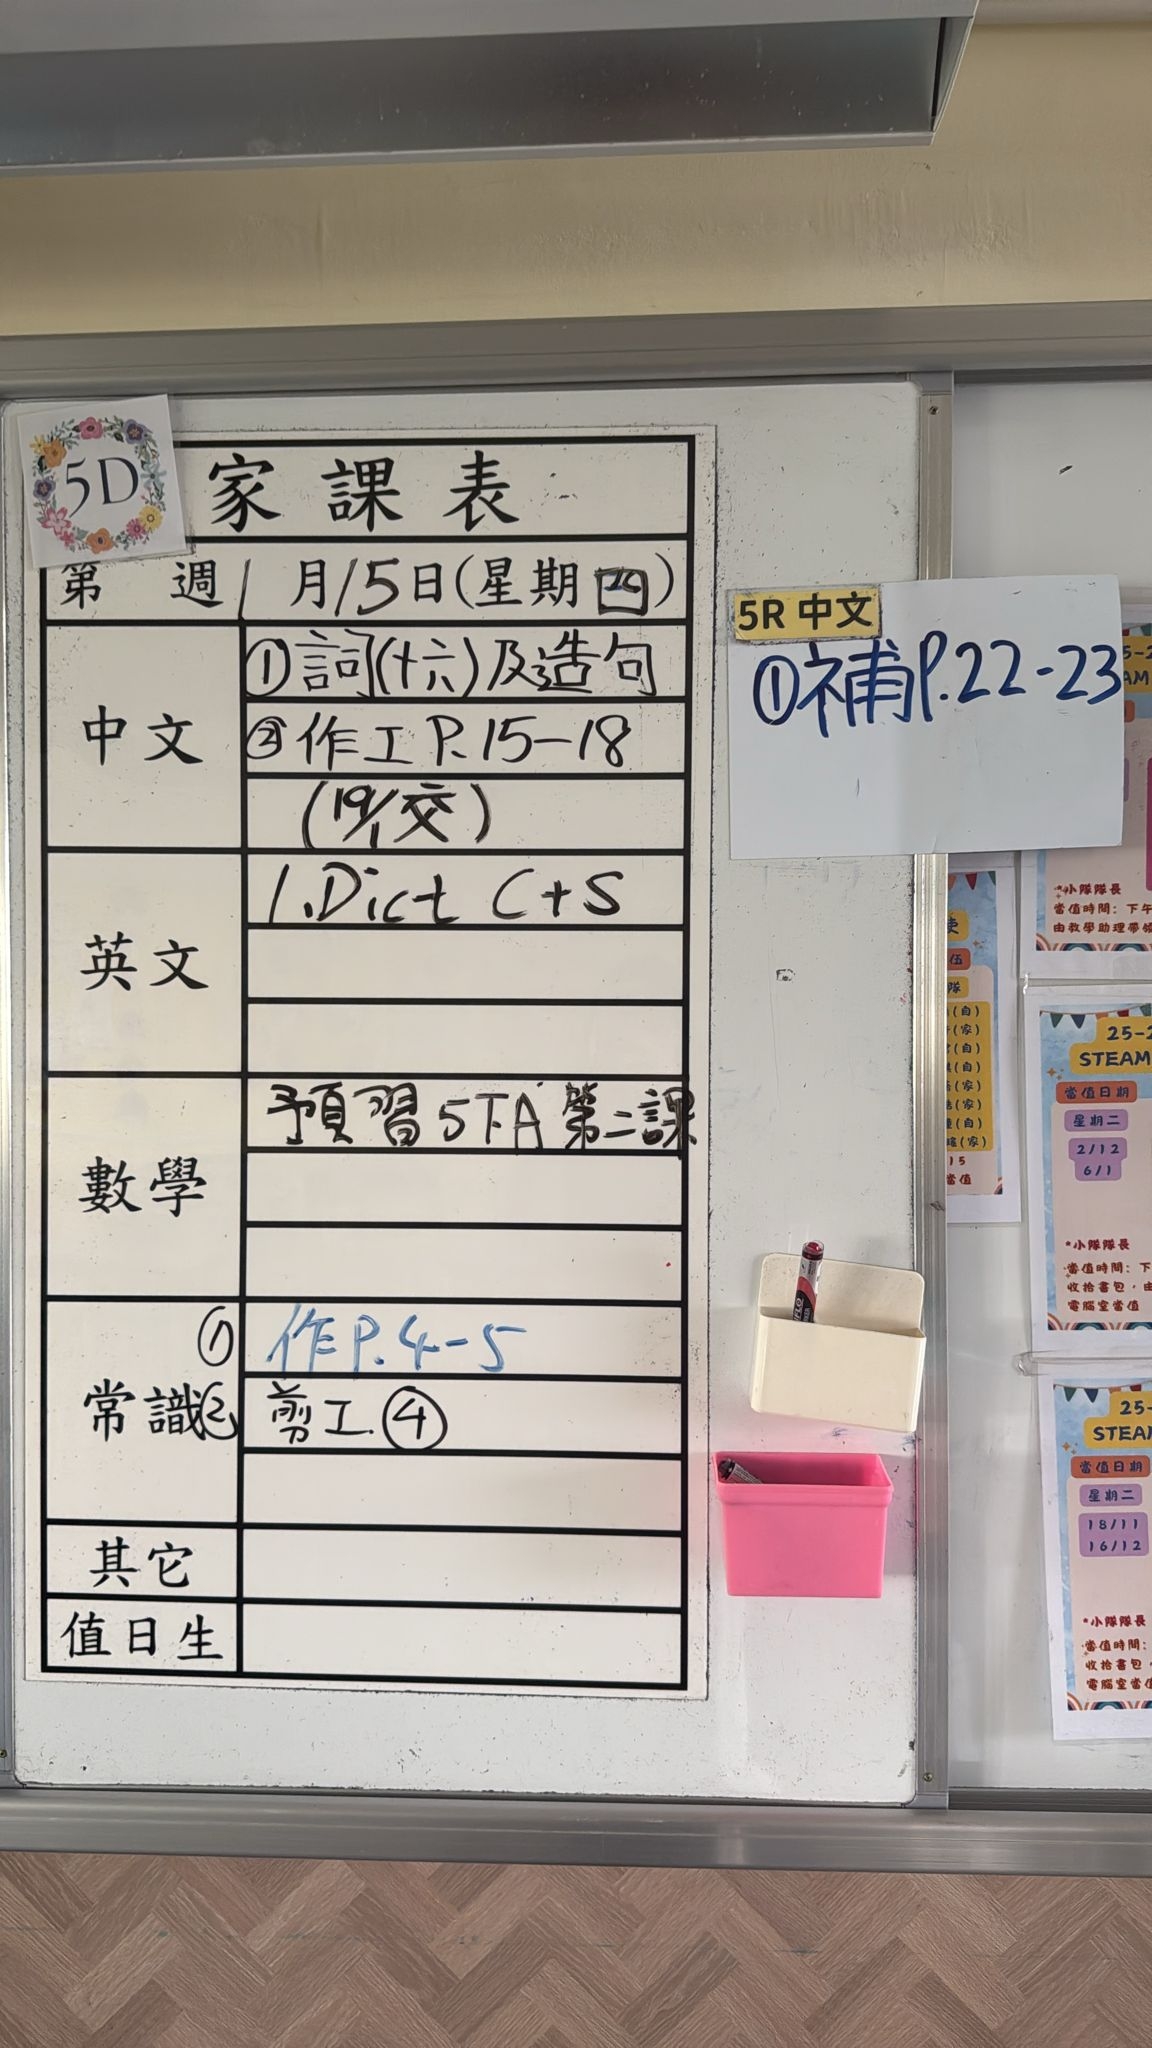 5D
家課表
第 週 1月15日(星期四)
中文
①詞(十六)及造句
②作工P.15-18
(19/1交)
英文
1.Dict C+S
數學
預習5下A第二課
常識
① 作P.4-5
② 剪工④
其它
值日生
5R 中文
①補P.22-23
*小隊隊長
當值時間：下午
由教學助理帶領
(自)
(家)
(自)
(自)
(家)
(家)
(自)
(家)
15
當值
25-2
STEAM
當值日期
星期二
2/12
6/1
*小隊隊長
當值時間：下
收拾書包，由
電腦室當值
25-
STEAM
當值日期
星期二
18/11
16/12
*小隊隊長
當值時間：
收拾書包，
電腦室當值